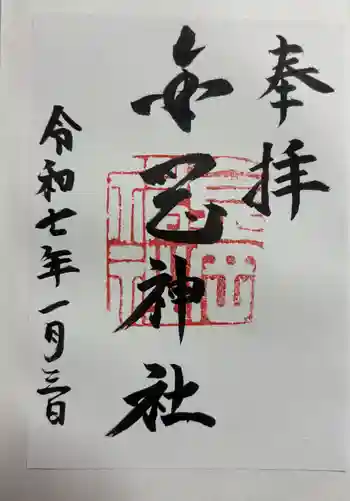 奉拝
神社
令和七年一月三日